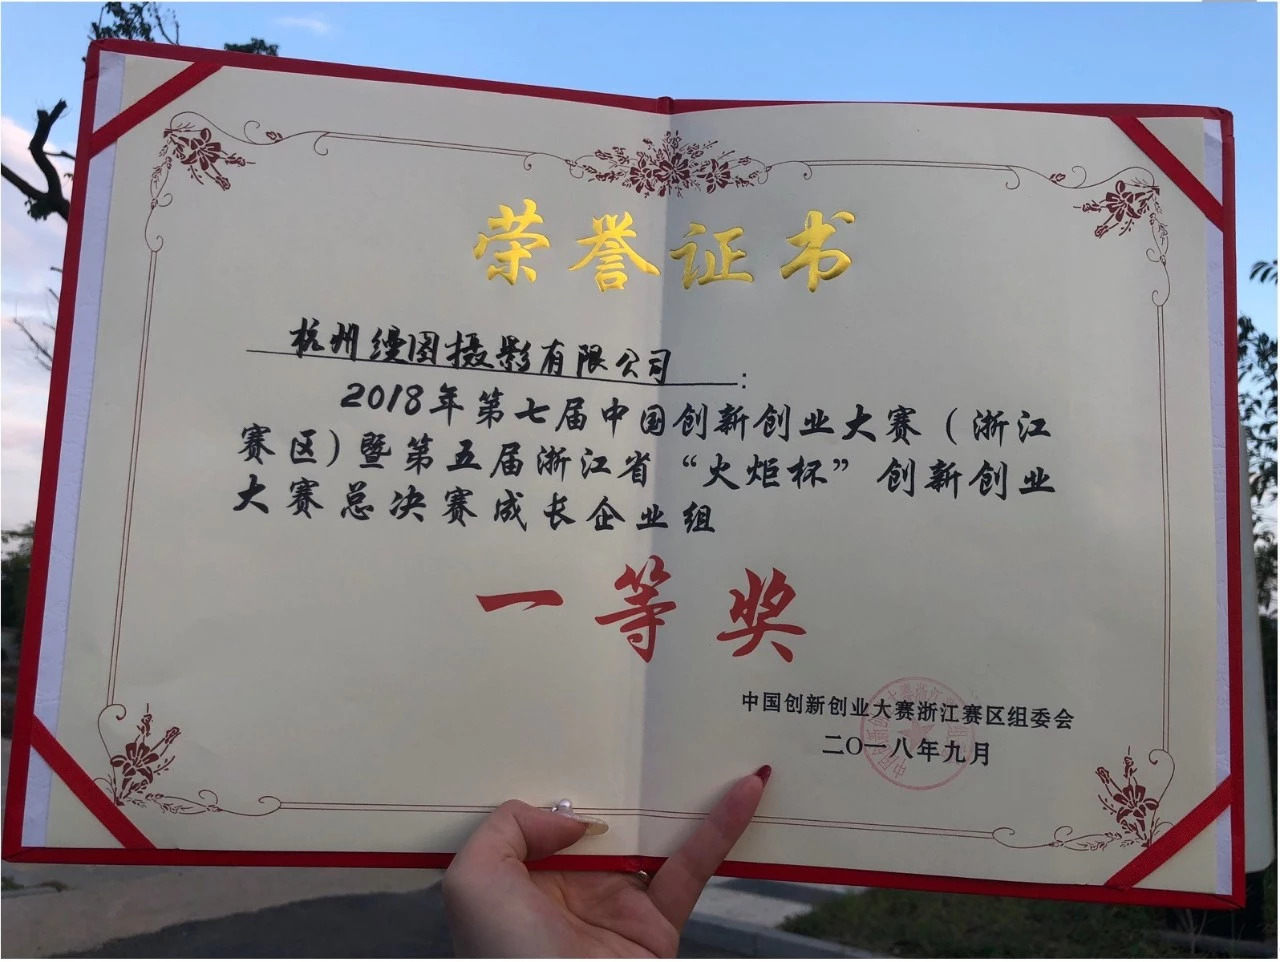 荣誉证书
杭州缦图摄影有限公司：
2018年第七届中国创新创业大赛（浙江
赛区）暨第五届浙江省“火炬杯”创新创业
大赛总决赛成长企业组
一等奖
中国创新创业大赛浙江赛区组委会
二〇一八年九月